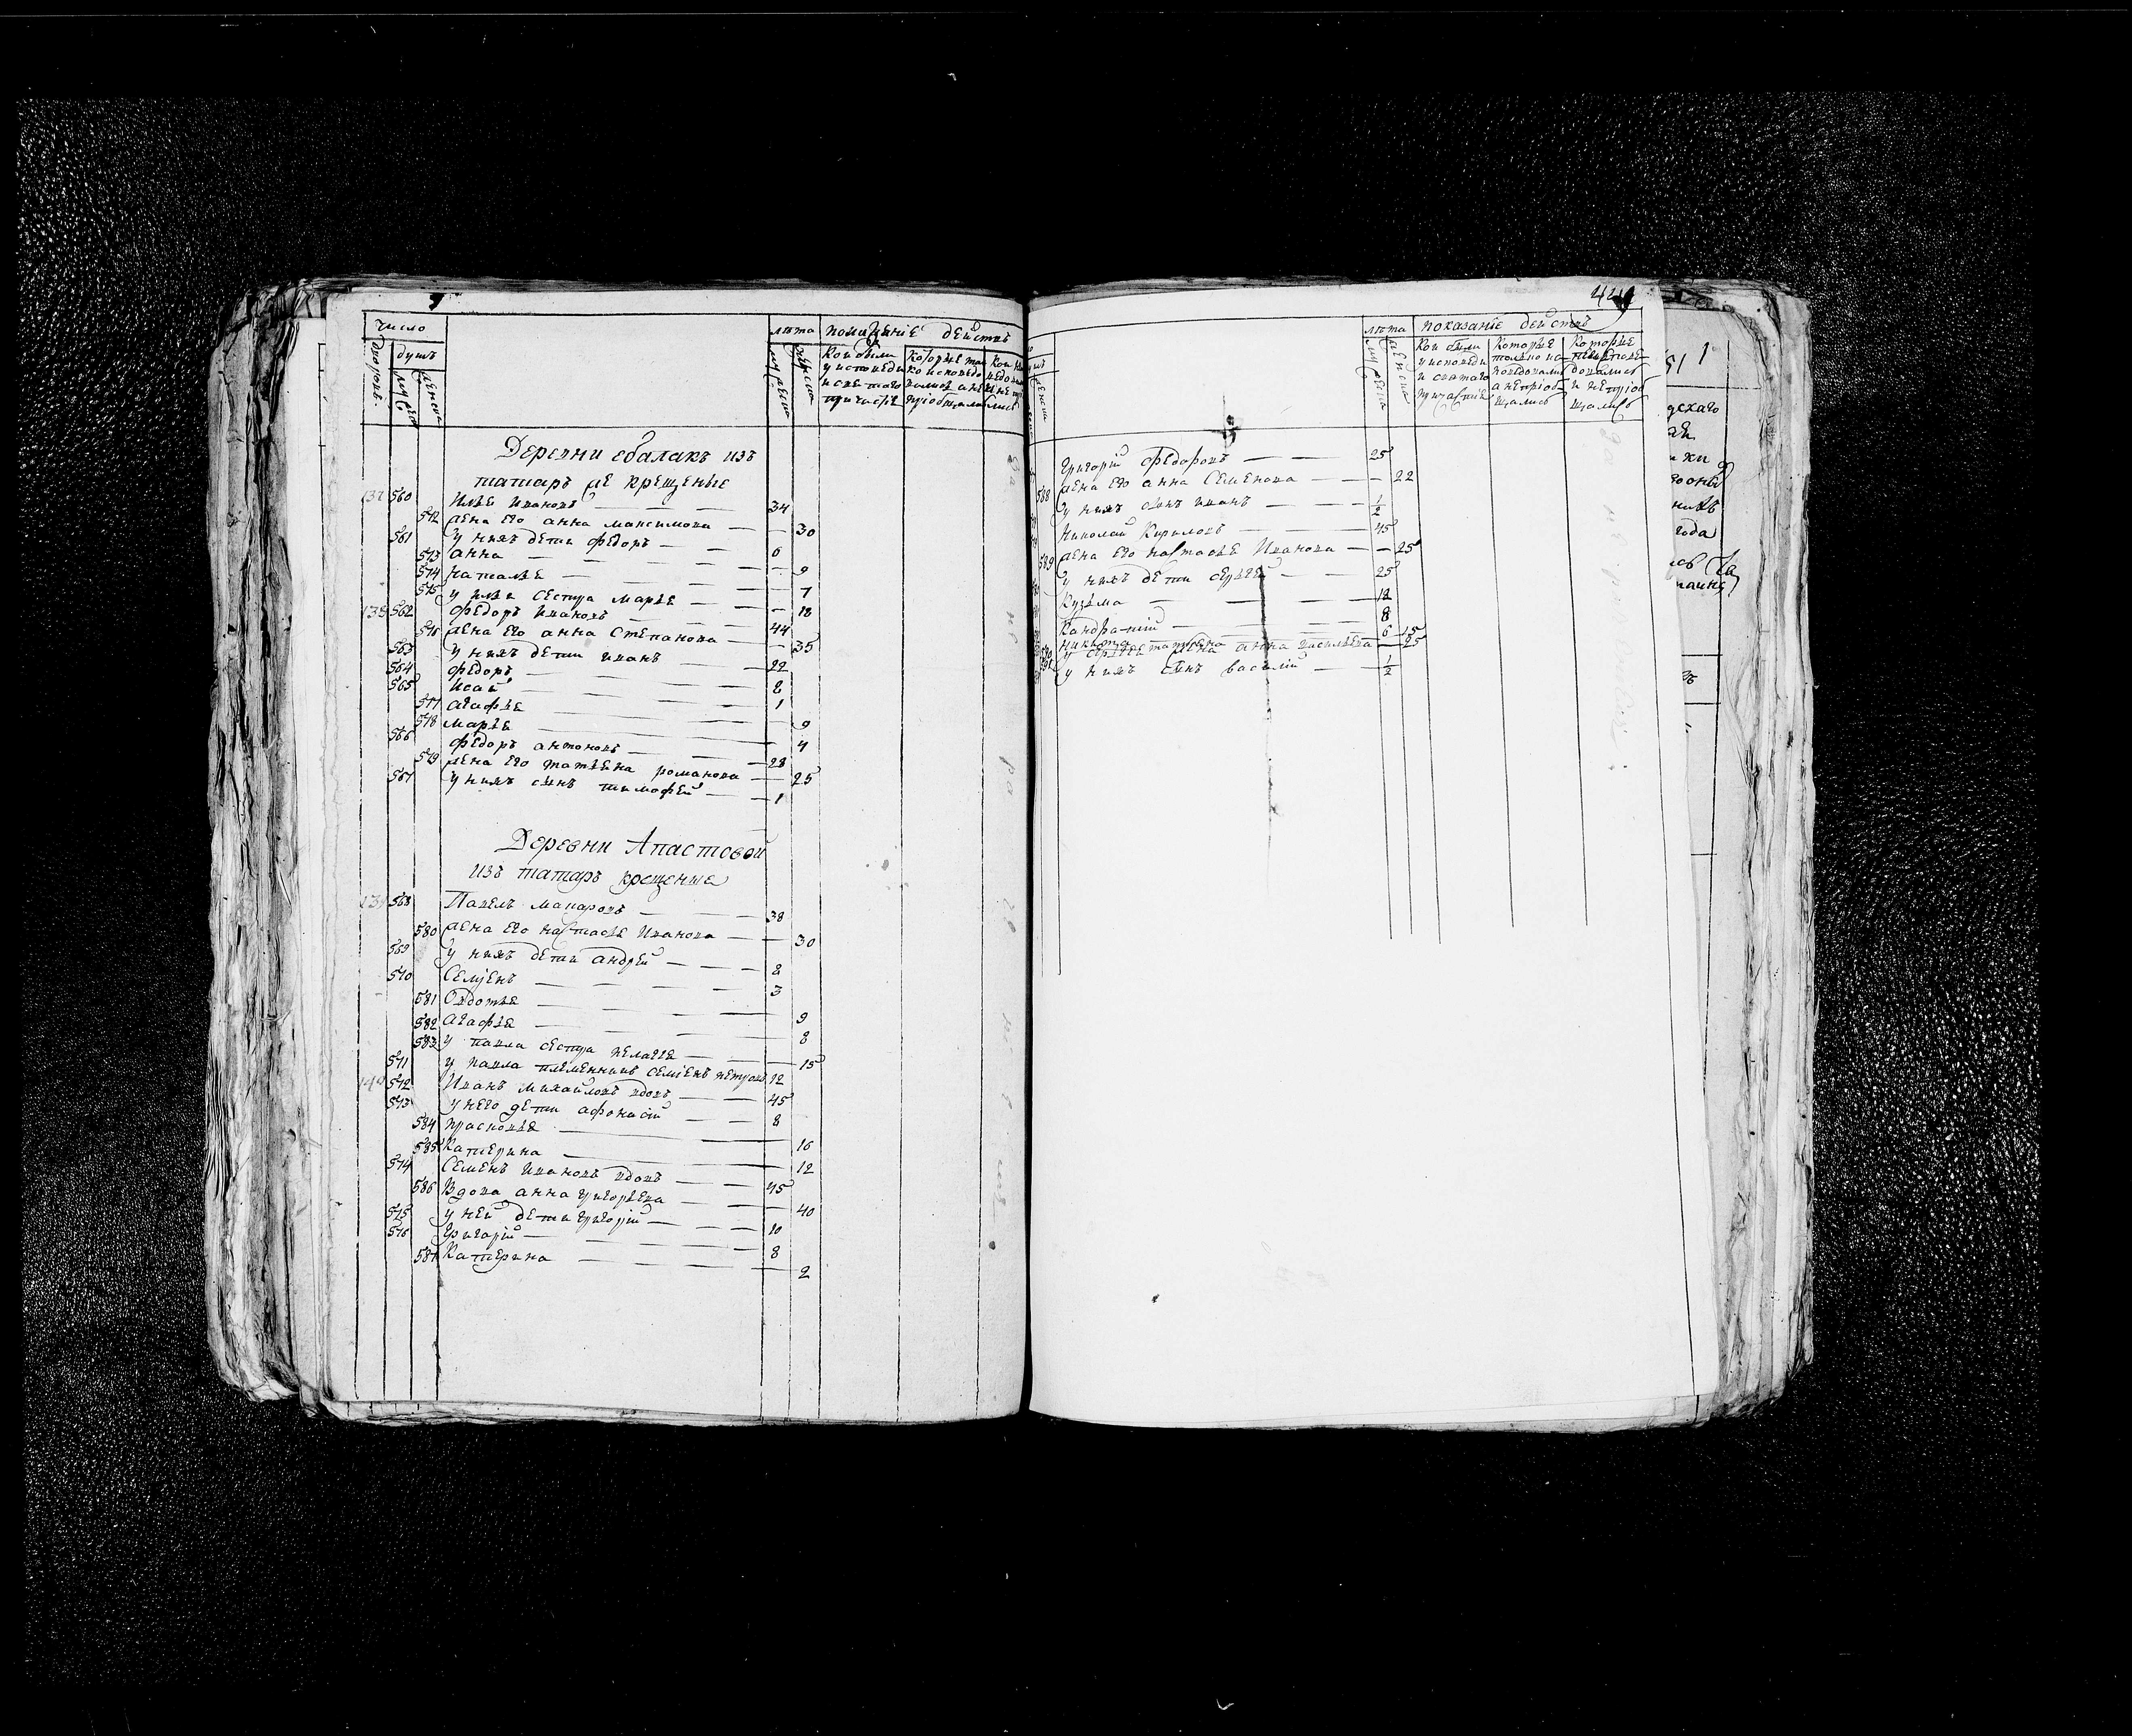 число
лѣта показание действъ
дворовъ
душъ
мужеска
женска
мужеска
женска
Кои были у исповеди и святаго причастiя
Которые токо исповедо вались а не прiобщались
Деревни ебалакъ изъ
татаръ же крещеные
137 560 Илья Ивановъ — 34
572 жена его анна максимова — 30
561 у нихъ дети федоръ — 6
573 анна — 9
574 наталья — 7
575 у ильи сестра марья — 18
138 562 федоръ Ивановъ — 44
576 жена его анна Степанова — 35
563 у нихъ дети иванъ — 22
564 федоръ — 2
565 Исай — 1
577 агафья — 9
578 марья — 4
566 федоръ антоновъ — 28
579 жена его татьяна романова — 25
567 у нихъ сынъ тимофей — 1
Деревни Апастовой
изъ татаръ крещеные
139 568 Павелъ макаровъ — 38
580 жена его настасья Иванова — 30
569 у нихъ дети андрей — 8
570 Семүенъ — 3
581 Овдотья — 9
582 агафья — 8
583 у павла сестра пелагея — 15
571 у павла племенникъ семенъ петровъ 12
140 572 Иванъ михайловъ вдовъ — 45
573 у него дети афонасiй — 8
584 прасковья — 16
585 Катерина — 12
574 Семенъ ивановъ вдовъ — 45
586 Вдова анна григорьева — 40
575 у ней дети григорiй — 10
576 григорiй — 8
587 Катерина — 2
449
лѣта показанiе действъ
мужеска
женска
Кои были у исповеди и святаго причастiя
Которые только исповедались а непрiобщались
Которые неисповедовались и непрiобщались
григорiй федоровъ — 25
588 жена его анна Семенова — 22
у нихъ сынъ иванъ — 1/2
Николай Кириловъ — 45
589 жена его настасья Иванова — 25
у нихъ дети сергей — 25
Кузьма — 12
Кандратiй — 8
никита — 6
татьяна — 15
у сергея жена анна васильева — 25
у нихъ сынъ василiй — 1/2